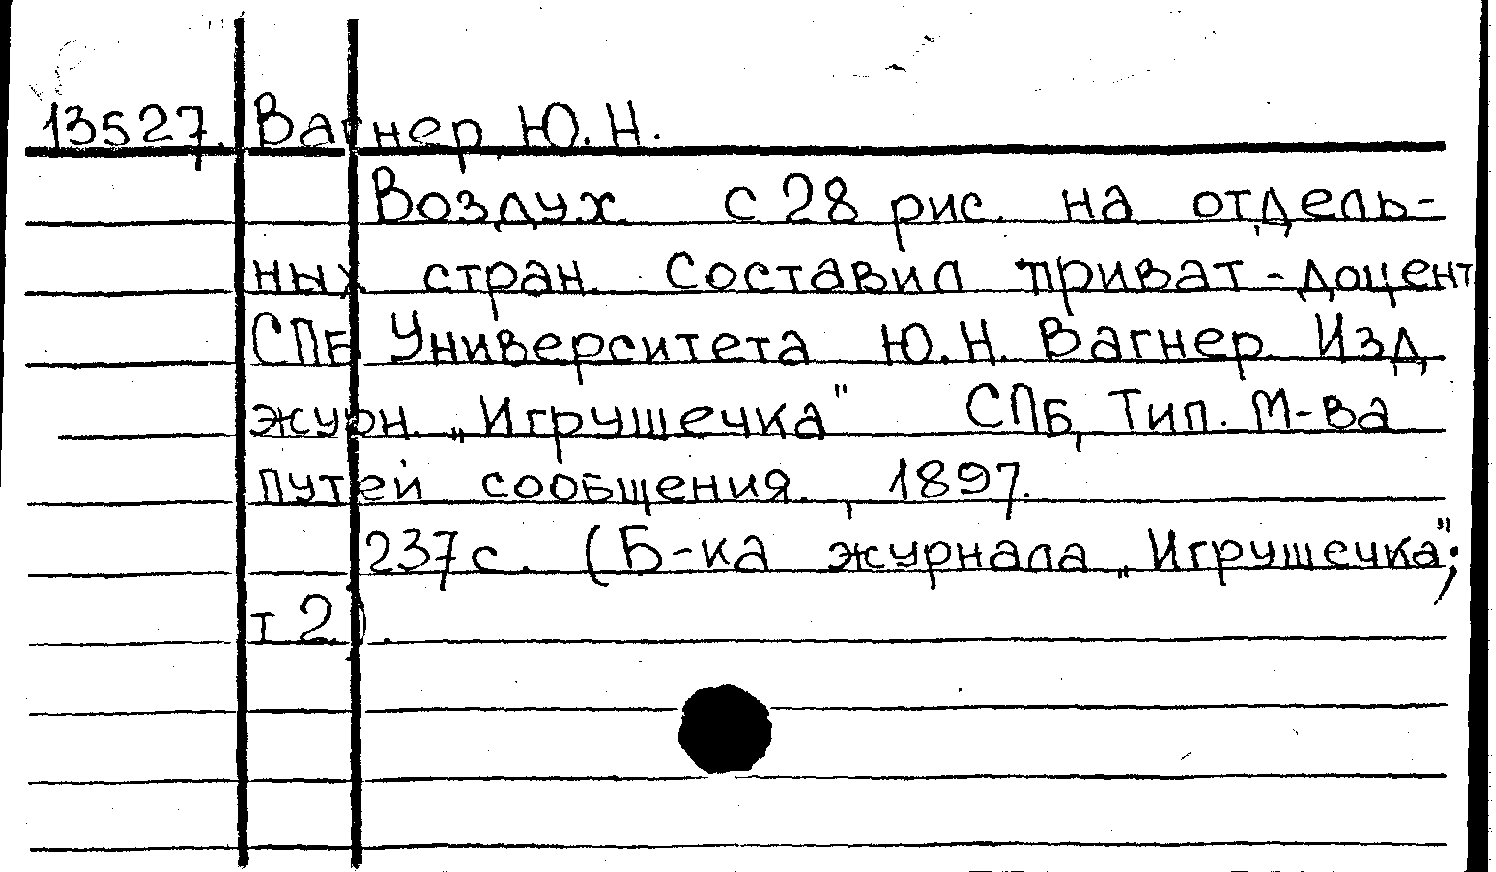 13527. Вагнер Ю.Н.
Воздух с 28 рис. на отдель-
ных стран. Составил приват-доцент
СПБ Университета Ю.Н. Вагнер. Изд.
журн. „Игрушечка" СПБ, Тип. М-ва
путей сообщения, 1897.
237 с. (Б-ка журнала „Игрушечка";
т 2).